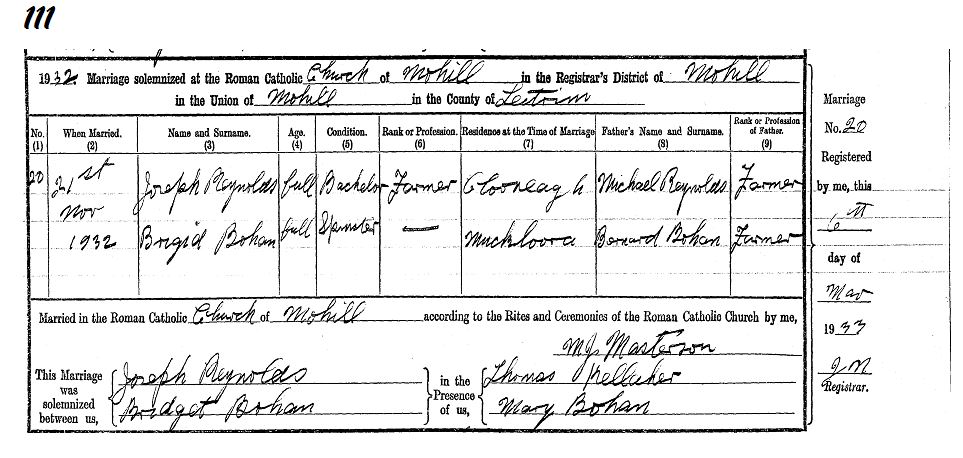 111
1932 Marriage solemnized at the Roman Catholic Church of Mohill in the Registrar's District of Mohill
in the Union of Mohill in the County of Leitrim
No. When Married. Name and Surname. Age. Condition. Rank or Profession. Residence at the Time of Marriage Father's Name and Surname. Rank or Profession of Father.
(1) (2) (3) (4) (5) (6) (7) (8) (9)
20 21st Nov 1932 Joseph Reynolds full Bachelor Farmer Clooneagh Michael Reynolds Farmer
Brigid Bohan full Spinster — Muckloora Bernard Bohan Farmer
Married in the Roman Catholic Church of Mohill according to the Rites and Ceremonies of the Roman Catholic Church by me,
MJ Masterson
This Marriage was solemnized between us,
Joseph Reynolds
Bridget Bohan
in the Presence of us,
Thomas Kelleher
Mary Bohan
Marriage
No. 20
Registered
by me, this
6th
day of
Mar
1933
Registrar.